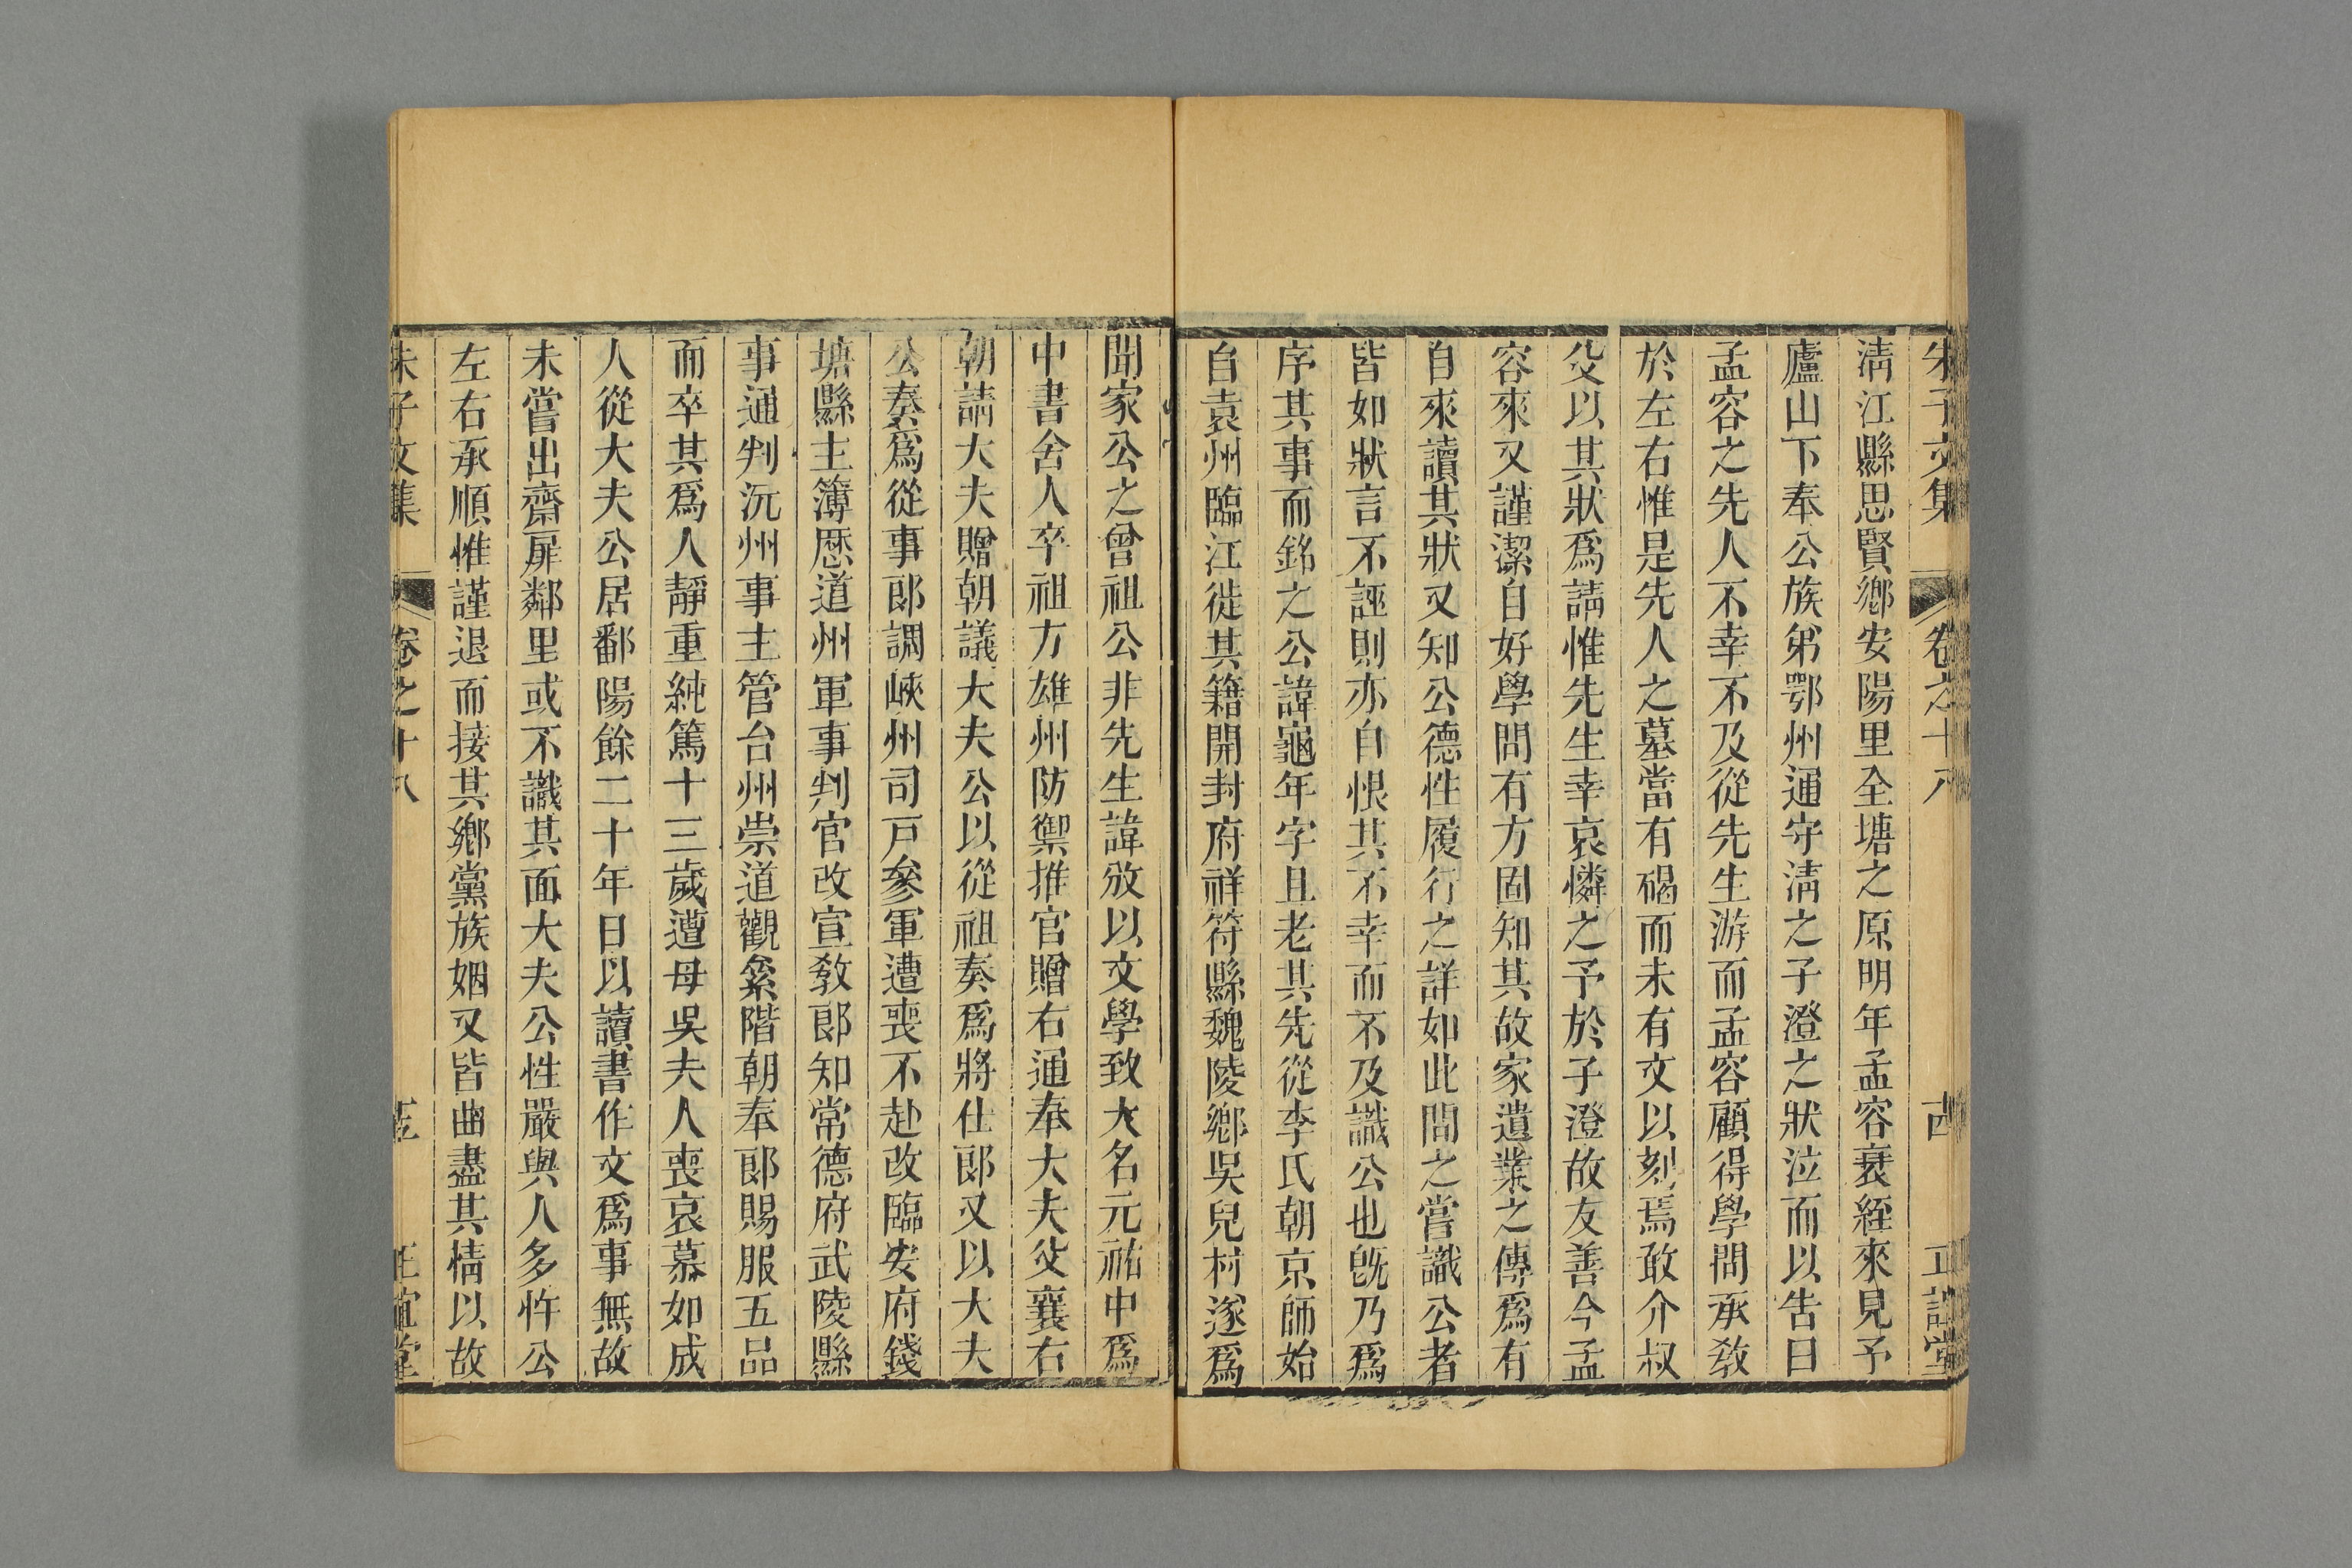 朱子文集 卷之十八 古 正誼堂
淸江縣思賢鄉安陽里全塘之原明年孟容衰絰來見予
廬山下奉公族弟鄂州通守淸之子澄之狀泣而以告曰
孟容之先人不幸不及從先生游而孟容顧得學問承敎
於左右惟是先人之墓當有碣而未有文以刻焉敢介叔
父以其狀爲請惟先生幸哀憐之予於子澄故友善今孟
容來又謹潔自好學問有方固知其故家遺業之傳爲有
自來讀其狀又知公德性履行之詳如此問之嘗識公者
皆如狀言不誣則亦自恨其不幸而不及識公也旣乃爲
序其事而銘之公諱龜年字且老其先從李氏朝京師始
自袁州臨江徙其籍開封府祥符縣魏陵鄉吳兒村遂爲
聞家公之曾祖公非先生諱攽以文學致大名元祐中爲
中書舍人卒祖方雄州防禦推官贈右通奉大夫父襄右
朝請大夫贈朝議大夫公以從祖奏爲將仕郞又以大夫
公奏爲從事郞調峽州司戸參軍遭喪不赴改臨安府錢
塘縣主簿歷道州軍事判官改宣敎郞知常德府武陵縣
事通判沅州事主管台州崇道觀絫階朝奉郞賜服五品
而卒其爲人靜重純篤十三歲遭母吳夫人喪哀慕如成
人從大夫公居鄱陽餘二十年日以讀書作文爲事無故
未嘗出齋扉鄰里或不識其面大夫公性嚴與人多忤公
左右承順惟謹退而接其鄉黨族姻又皆曲盡其情以故
朱子文集 卷之十八 正誼堂